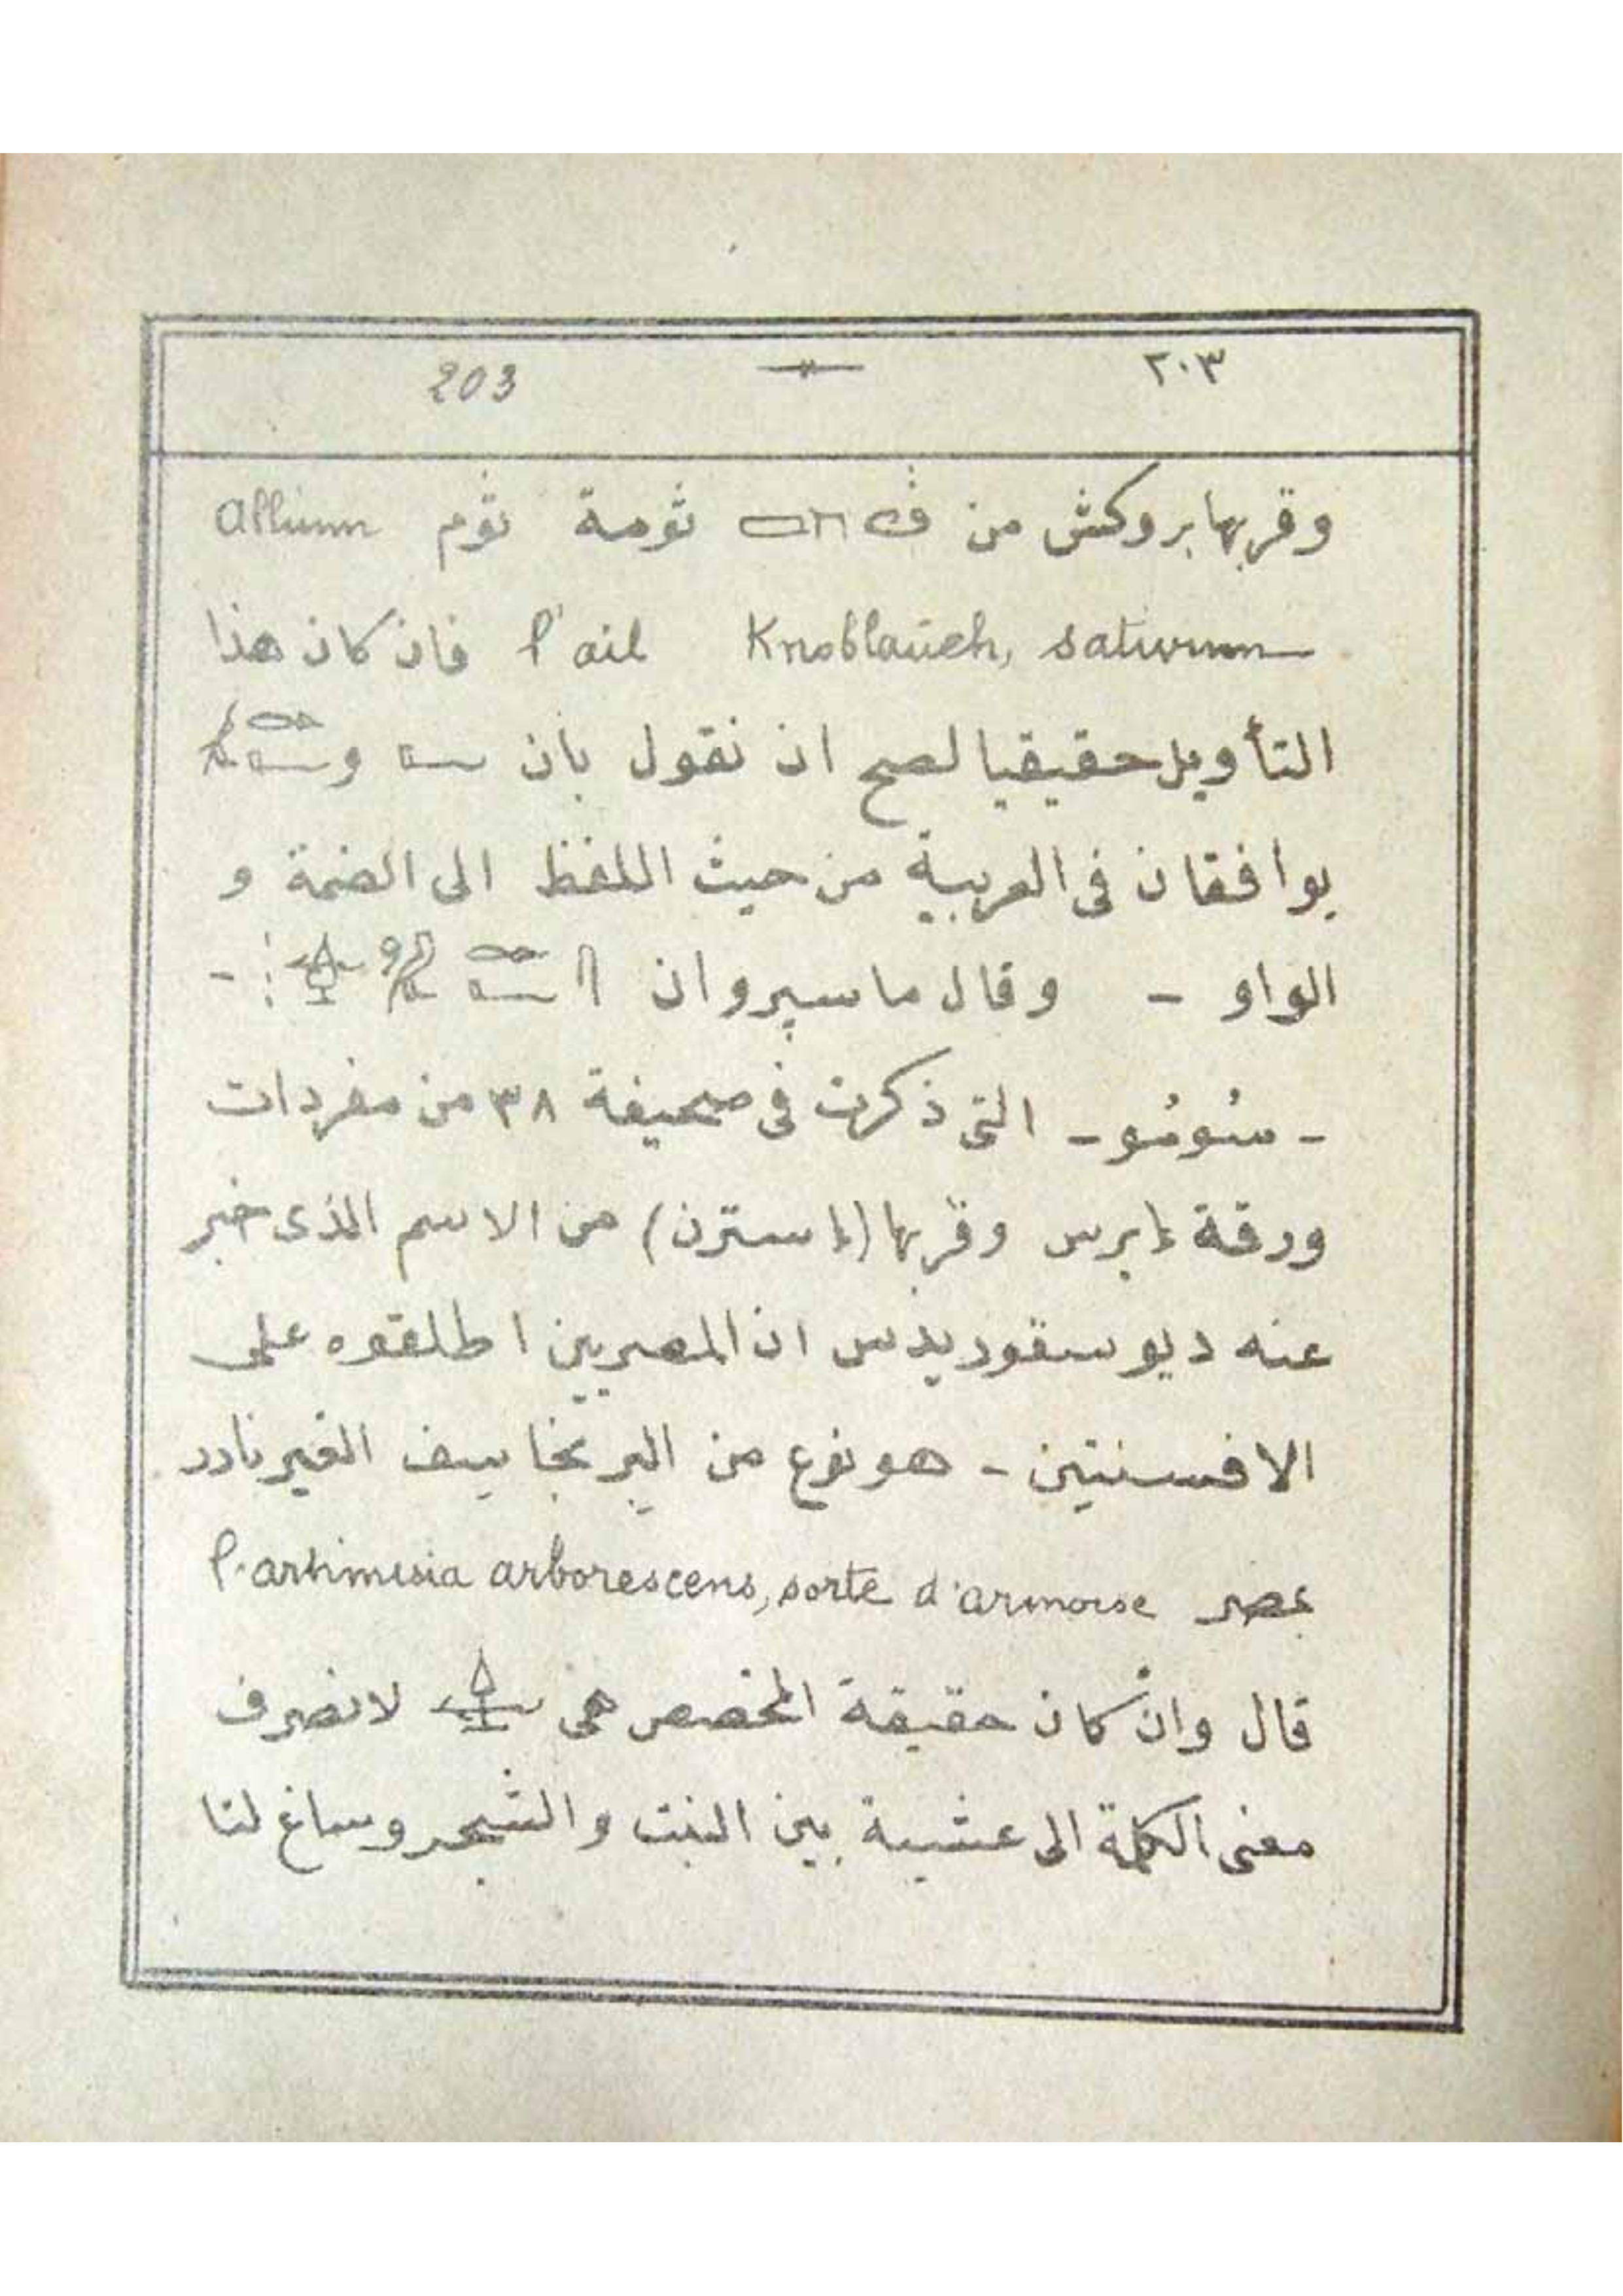 ٢٠٣ 203
وقربها بروكش من ثومة ثوم allium
sativum Knoblauch, l'ail فان كان هذا
التأويل حقيقيا لصح ان نقول بان و
يوافقان فى العربية من حيث اللفظ الى الضمة و
الواو - وقال ماسپرو ان -
- سُومُو - التى ذكرت فى صحيفة ٣٨ من مفردات
ورقة إبرس وقربها (إسترن) من الاسم الذى خبر
عنه ديوسقوريدس ان المصريين اطلقوه على
الافسنتين - هو نوع من البرنجاسف الغير نادر
بمصر l'arthimisia arborescens, sorte d'armoise
قال وان كان حقيقة المخصص هى لانصرف
معنى الكلمة الى عشبة بين النبت والشجر وساغ لنا